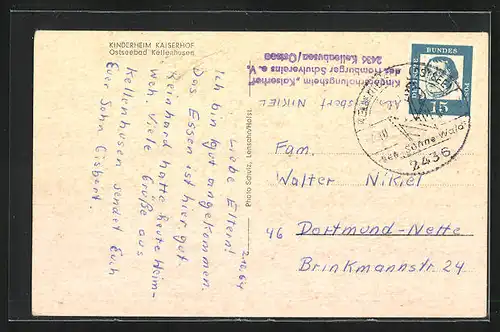 KINDERHEIM KAISERHOF
Ostseebad Kellenhusen
2.10.64
Liebe Eltern!
Ich bin gut angekommen.
Das Essen ist hier gut.
Reinhard hatte heute Heim-
weh. Viele Grüße aus
Kellenhusen sendet Euch
Euer Sohn Gisbert.
Photo Schutz, Lensahn/Holst.
Kindererholungsheim „Kaiserhof"
des Hamburger Schulvereins e. V.
2436 Kellenhusen/Ostsee
Abs. Gisbert NIKIEL
DEUTSCHE BUNDES POST
15
See, Sonne, Wald
2436
Fam.
Walter Nikiel
46 Dortmund-Nette
Brinkmannstr. 24